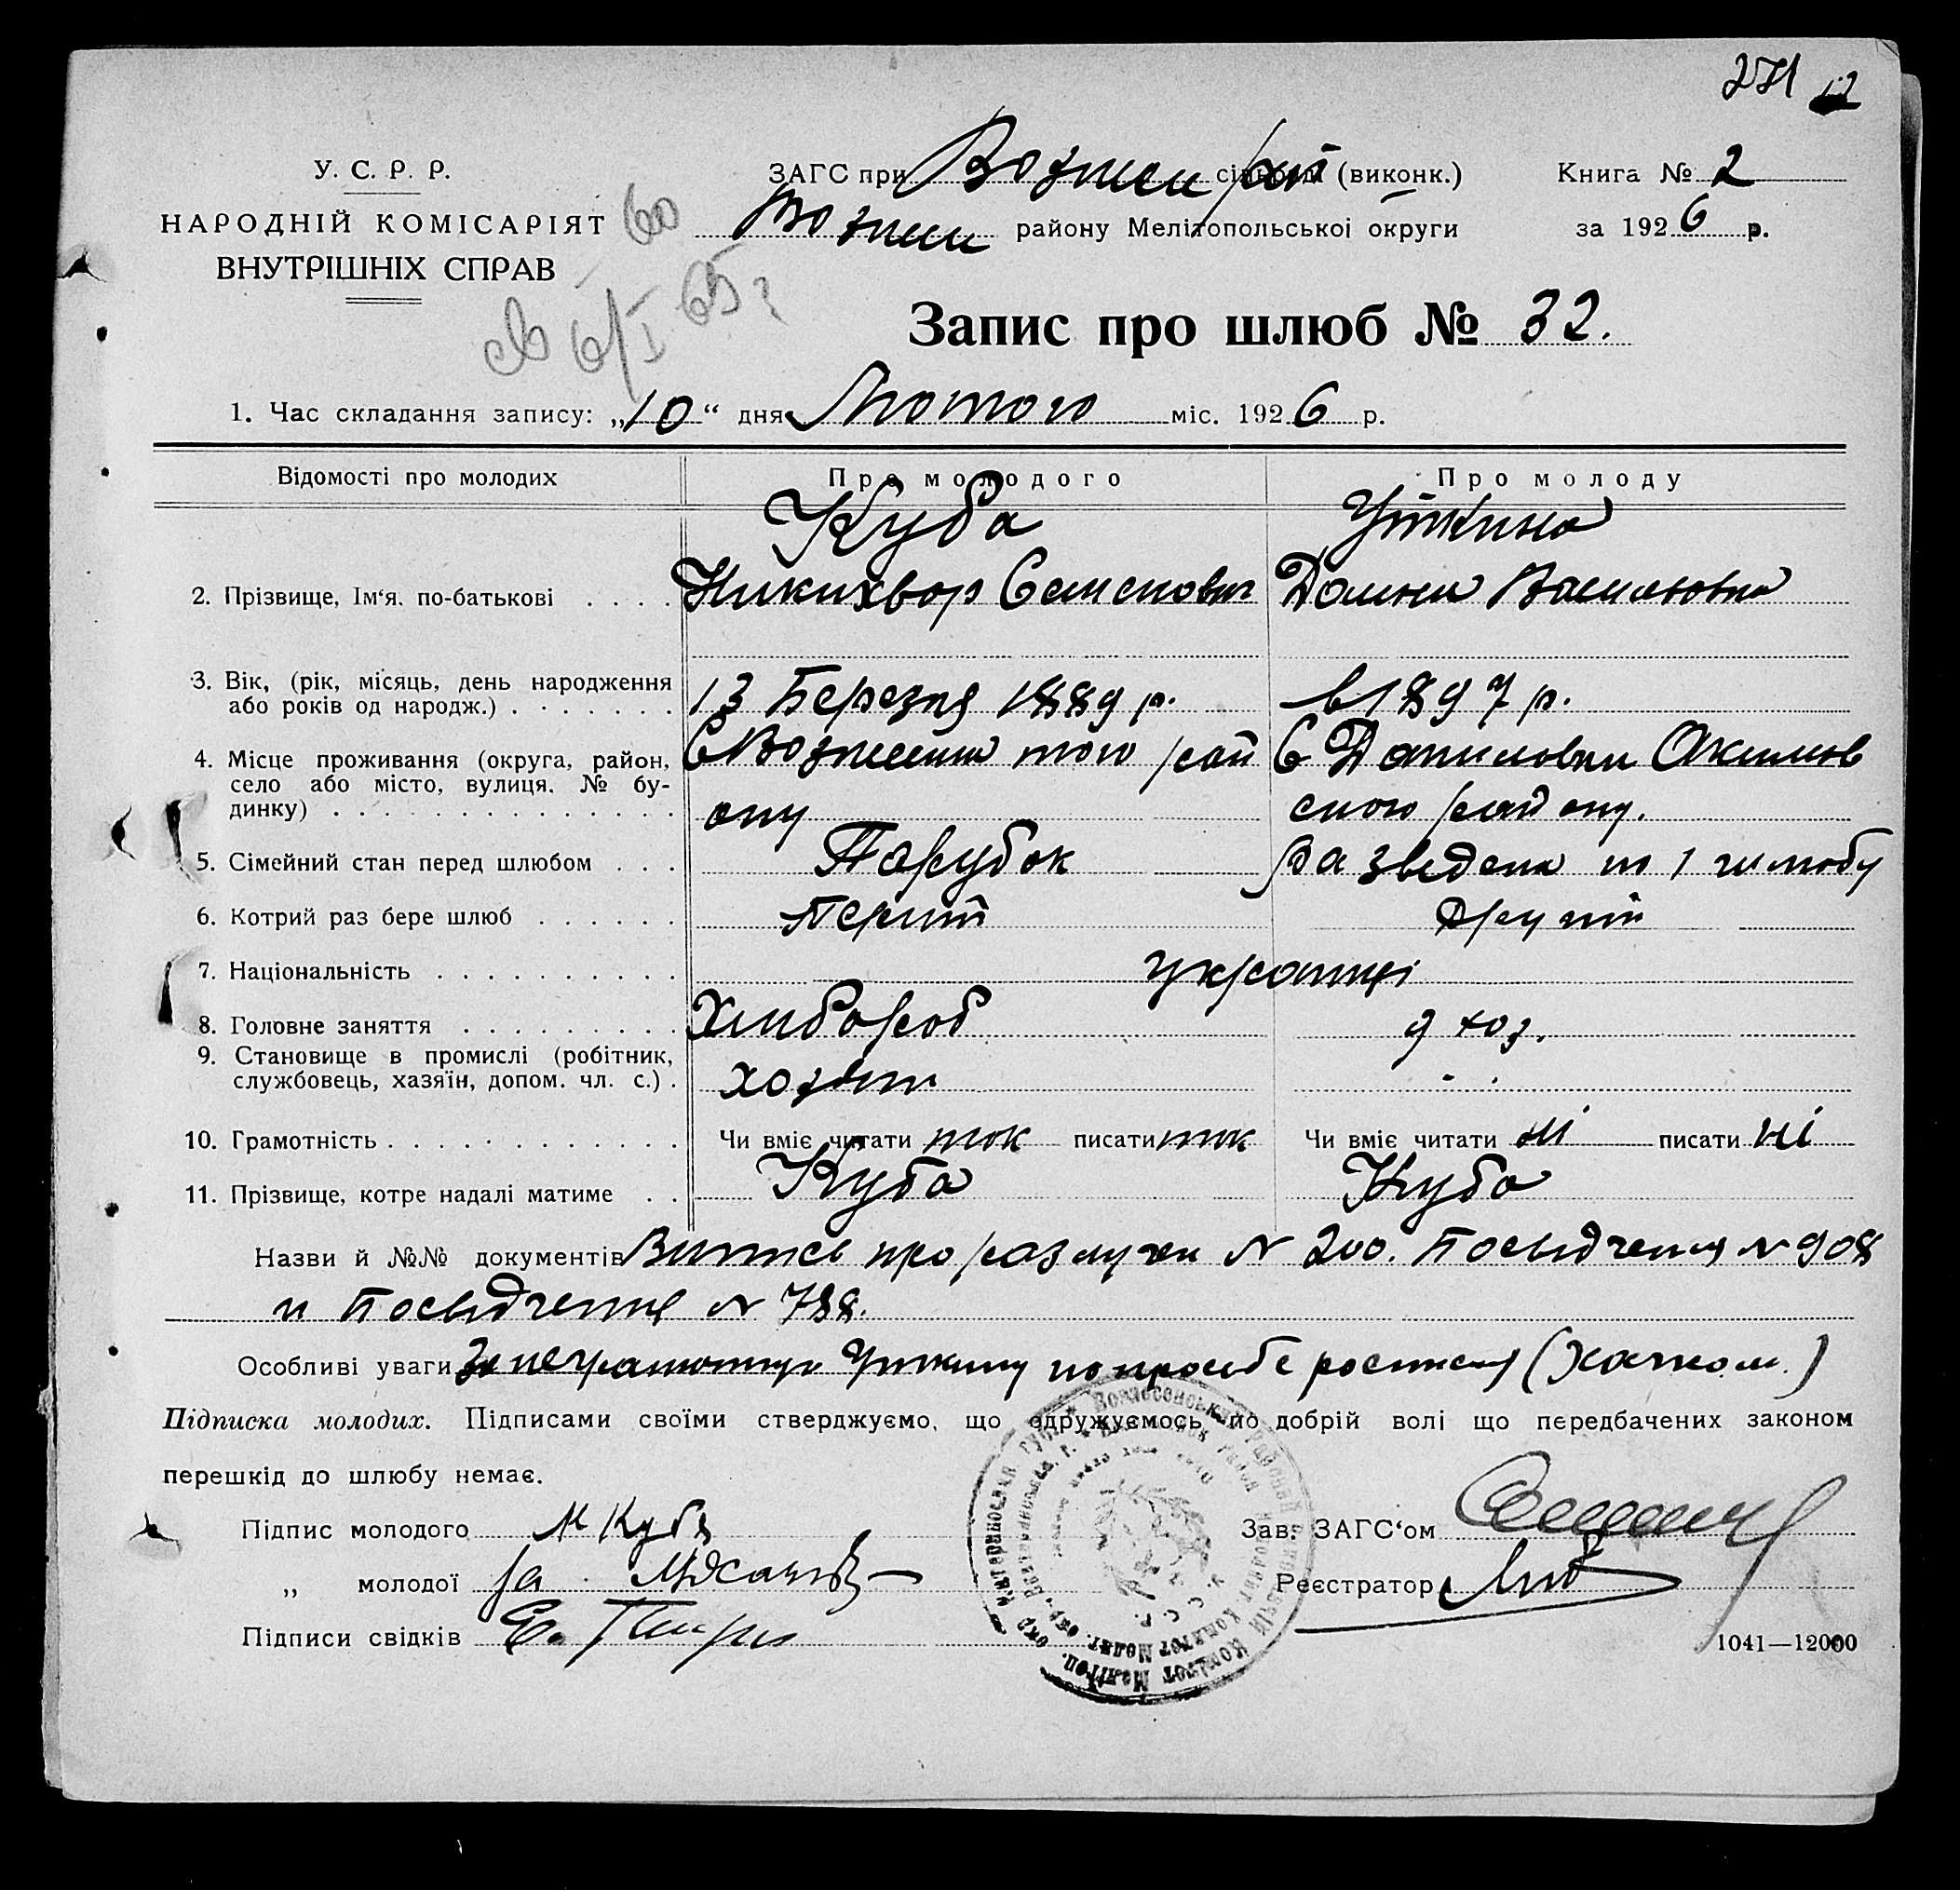 271 12
У. С. Р. Р.
НАРОДНІЙ КОМІСАРІЯТ
ВНУТРІШНІХ СПРАВ
ЗАГС при Вознесен рай сільраді (виконк.) Книга № 2
Вознесен району Мелітопольської округи за 1926 р.
Запис про шлюб № 32.
1. Час складання запису: „10“ дня Лютого міс. 1926 р.
Відомості про молодих Про молодого Про молоду
Куба Уткина
2. Прізвище, Ім‘я, по-батькові . . . . Никихвор Семенович Домни Васильовна
3. Вік, (рік, місяць, день народження
або років од народж.) . . . . . . . 13 Березня 1889 р. в 1897 р.
4. Місце проживання (округа, район,
село або місто, вулиця, № бу-
динку) . . . . . . . . . . . . . .
С Вознесенка того рай
ону
С Даниловки Акимов
ского району.
5. Сімейний стан перед шлюбом . . . Парубок разведена по 1 шлюбу
6. Котрий раз бере шлюб . . . . . . Перший другий
7. Національність . . . . . . . . . . українці
8. Головне заняття . . . . . . . . . Хлибороб д хоз.
9. Становище в промислі (робітник,
службовець, хазяїн, допом. чл. с.) . хозяин
10. Грамотність . . . . . . . . . . . . . Чи вміє читати так писати так Чи вміє читати ні писати ні
11. Прізвище, котре надалі матиме . . Куба Куба
Назви й №№ документів Випись про разлуки N 200. Посвідчення N 908
и Посвідчення N 788.
Особливі уваги За неграмотную Уткину по просьбе росписался
Підписка молодих. Підписами своїми стверджуємо, що одружуємось по добрій волі що передбачених законом
перешкід до шлюбу немає.
Підпис молодого Н Куба
„ молодої за
Підписи свідків
Зав. ЗАГС‘ом
Реєстратор
1041—12000